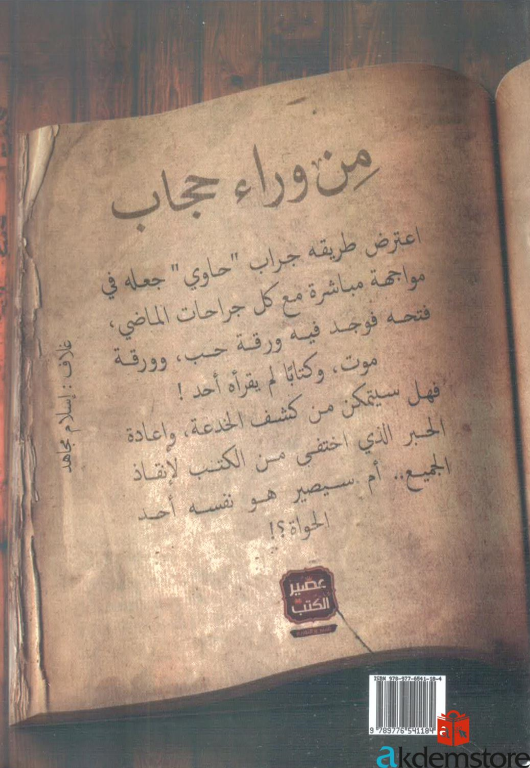 مِن وراء حجاب
اعترض طريقه جراب "حاوي" جعله في
مواجهة مباشرة مع كل جراحات الماضي،
فتحه فوجد فيه ورقة حب، وورقة
موت، وكتابًا لم يقرأه أحد !
فهل سيتمكن من كشف الخدعة، وإعادة
الحبر الذي اختفى من الكتب لإنقاذ
الجميع.. أم سيصير هو نفسه أحد
الحواة؟!
غلاف : إسلام مجاهد
عصير
الكتب
ISBN 978-977-6541-10-4
9 789776 541104
akdemstore